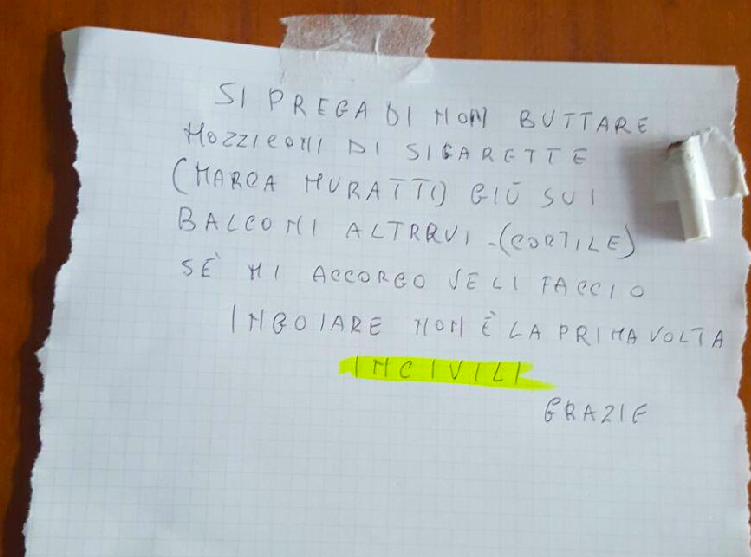 SI PREGA DI NON BUTTARE
MOZZICONI DI SIGARETTE
(MARCA MURATTI) GIÙ SUI
BALCONI ALTRRUI -(CORTILE)
SÈ MI ACCORGO VE LI FACCIO
INGOIARE NON È LA PRIMA VOLTA
INCIVILI
GRAZIE